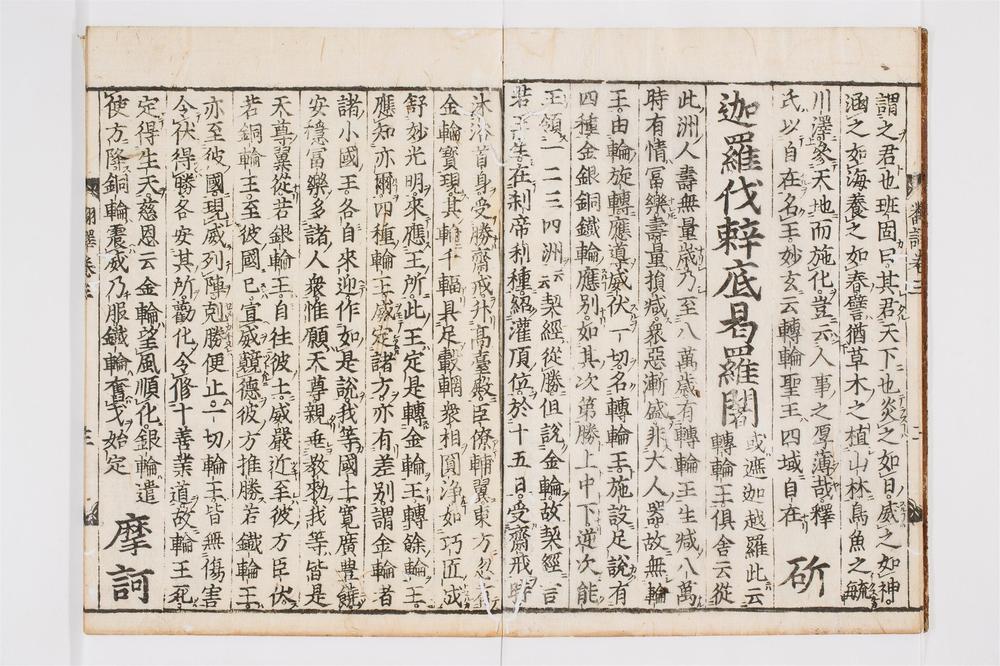 謂之君也班固曰其君天下也炎之如日威之如神
涵之如海養之如春譬猶草木之植山林鳥魚之毓
川澤參天地而施化豈云人事之厚薄哉釋
氏以自在名王妙玄云轉輪聖王四域自在 斫
迦羅伐辣底曷羅闍 或遮迦越羅此云
轉輪王俱舍云從
此洲人壽無量歲乃至八萬歲有轉輪王生减八萬
時有情冨樂壽量損减衆惡漸盛非大人器故無輪
王由輪旋轉應導威伏一切名轉輪王施設足說有
四種金銀銅鐵輪應別如其次第勝上中下逆次能
王領一二三四洲云云契經從勝但說金輪故契經言
若王生在刹帝利種紹灌頂位於十五日受齋戒時
沐浴首身受勝齋戒升高臺殿臣僚輔翼東方忽有
金輪寶現其輪千輻具足轂輞衆相圓淨如巧匠成
舒妙光明來應王所此王定是轉金輪王轉餘輪王
應知亦爾四種輪王威定諸方亦有差別謂金輪者
諸小國王各自來迎作如是說我等國土寬廣豊饒
安穩富樂多諸人衆惟願天尊親垂敎勅我等皆是
天尊翼從若銀輪王自往彼土威嚴近至彼方臣伏
若銅輪王至彼國已宣威競德彼方推勝若鐵輪王
亦至彼國現威列陣剋勝便止一切輪王皆無傷害
令伏得勝各安其所勸化令修十善業道故輪王死
定得生天慈恩云金輪望風順化銀輪遣
使方降銅輪震威乃服鐵輪奮戈始定 摩訶